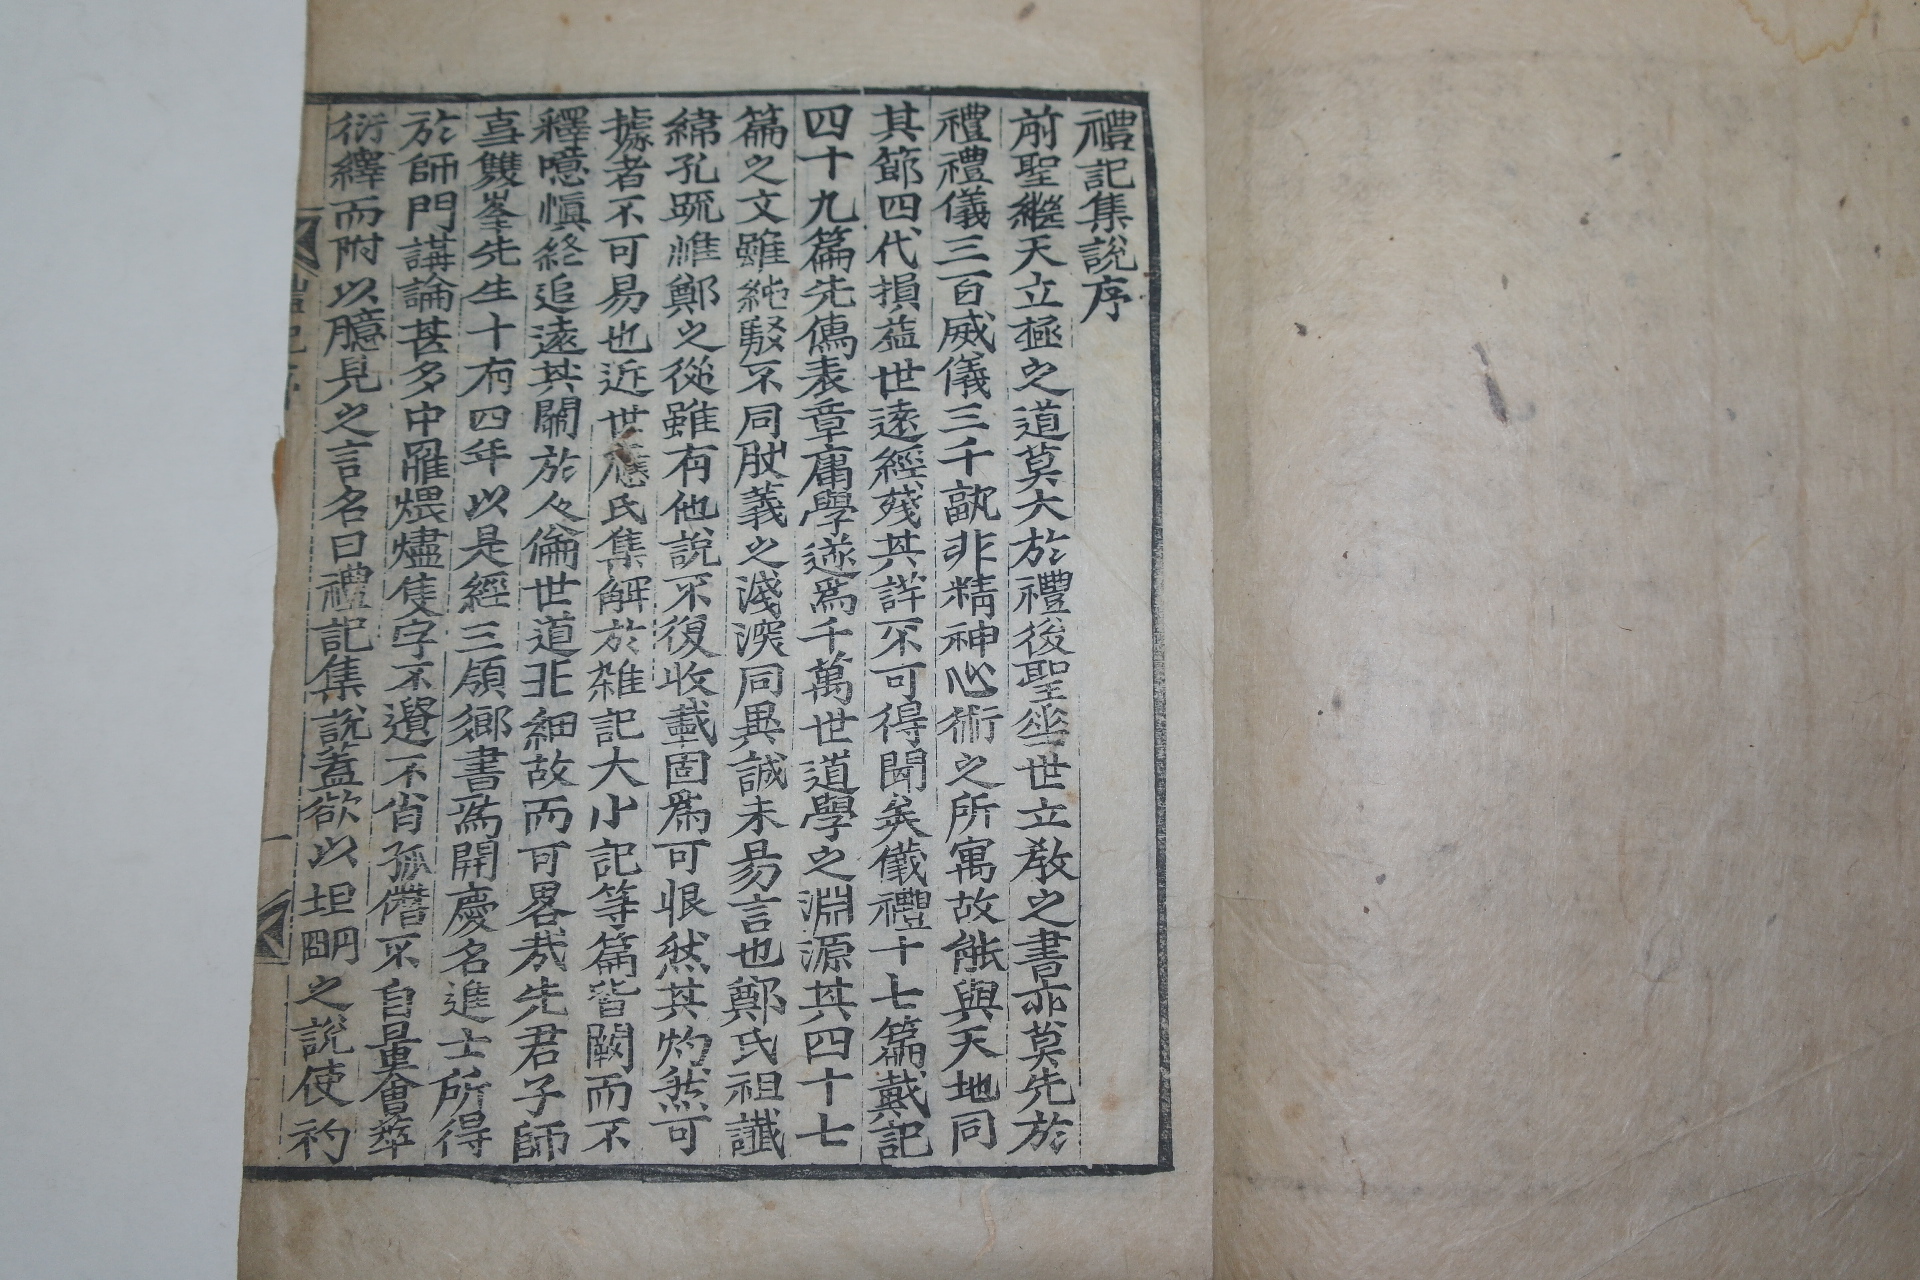 禮記集說序
前聖繼天立極之道莫大於禮後聖垂世立敎之書亦莫先於
禮禮儀三百威儀三千孰非精神心術之所寓故能與天地同
其節四代損益世遠經殘其詳不可得聞矣儀禮十七篇戴記
四十九篇先儒表章庸學遂爲千萬世道學之淵源其四十七
篇之文雖純駁不同然義之淺深同異誠未易言也鄭氏祖讖
緯孔疏惟鄭之從雖有他說不復收載固爲可恨然其灼然可
據者不可易也近世應氏集解於雜記大小記等篇皆闕而不
釋噫愼終追遠其關於人倫世道非細故而可畧哉先君子師
事雙峯先生十有四年以是經三領鄉書爲開慶名進士所得
於師門講論甚多中罹煨燼隻字不遺不肖孤僭不自量會萃
衍繹而附以臆見之言名曰禮記集說蓋欲以坦明之說使初
禮記序
一